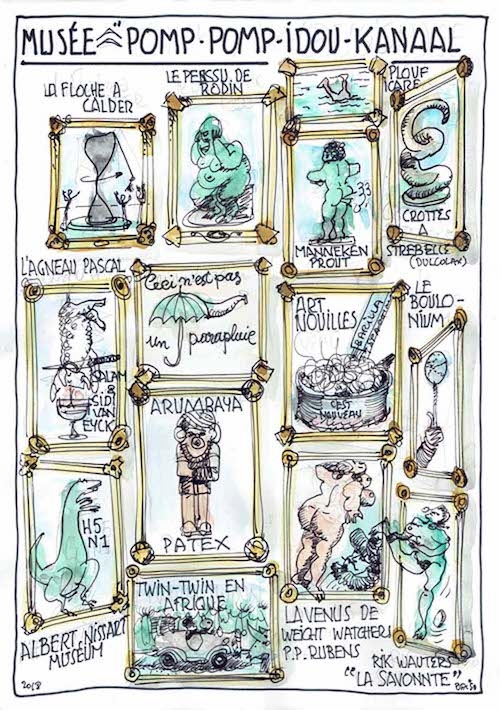 MUSÉE POMP-POMP-IDOU-KANAAL
LA FLOCHE A
CALDER
LE PENSSU DE
RODIN
PLOUF
ICARE
33
MANNEKEN
PROUT
CROTTES
A
STREBELLE
(DULCOLAX)
L'AGNEAU PASCAL
ISLAM
8
SIDI
VAN
EYCK
Ceci n'est pas
un parapluie
ART
NOUILLES
BARILLA
C'EST
NOUVEAU
LE
BOULO-
NIUM
ARUMBAYA
PATEX
H5
N1
ALBERT NISSART
MUSEUM
TWIN-TWIN EN
AFRIQUE
LA VENUS DE
WEIGHT WATCHERS
P.P. RUBENS
RIK WAUTERS
"LA SAVONNTE"
2018